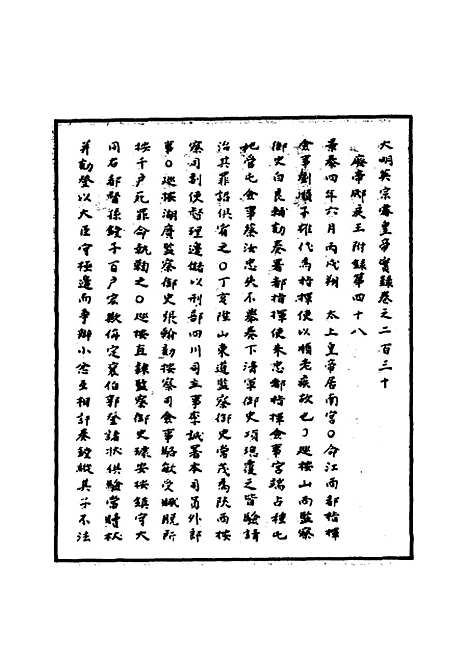 大明英宗睿皇帝實錄卷之二百三十
廢帝郕戾王附錄第四十八
景泰四年六月丙戌朔　太上皇帝居南宮○命江西都指揮
僉事劉順子雄代為指揮使以順老疾故也○巡按山西監察
御史白良輔劾奏署都指揮使朱忠都指揮僉事宮端占種屯
地管屯僉事蔡汝忠失不舉奏下清軍御史項璁覆之皆驗請
治其罪詔俱宥之○丁亥陞山東道監察御史常茂為陝西按
察司副使督理邊儲以刑部四川司主事李誠署本司員外郎
事○巡按湖廣監察御史張翰劾按察司僉事駱敏受贓脫所
按千戶死罪命執鞫之○巡按直隸監察御史練安按鎮守大
同右都督孫鏜子百戶宏欺侮定襄伯郭登諸狀俱驗當贖杖
并劾登以大臣守極邊而爭辯小忿互相訐奏鏜縱其子不法